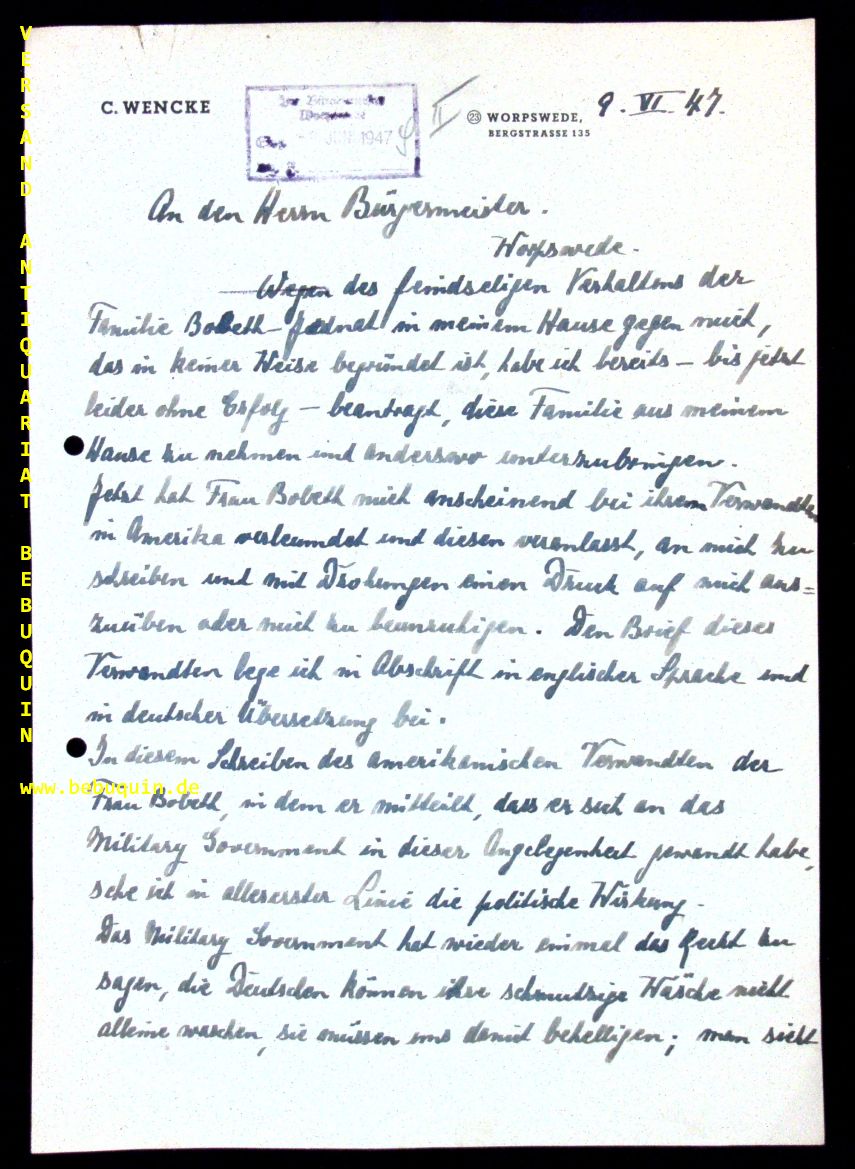 C. WENCKE
Der Bürgermeister
Worpswede
Eing. 9. JUNI 1947
II
23 WORPSWEDE, 9. VI. 47.
BERGSTRASSE 135
An den Herrn Bürgermeister.
Worpswede.
Wegen des feindseligen Verhaltens der
Familie Bobeth in meinem Hause gegen mich,
das in keiner Weise begründet ist, habe ich bereits – bis jetzt
leider ohne Erfolg – beantragt, diese Familie aus meinem
Hause zu nehmen und anderswo unterzubringen.
Jetzt hat Frau Bobeth mich anscheinend bei ihrem Verwandten
in Amerika verleumdet und diesen veranlasst, an mich zu
schreiben und mit Drohungen einen Druck auf mich aus=
zuüben oder mich zu beunruhigen. Den Brief dieses
Verwandten lege ich in Abschrift in englischer Sprache und
in deutscher Übersetzung bei.
In diesem Schreiben des amerikanischen Verwandten der
Frau Bobeth, in dem er mitteilt, dass er sich an das
Military Government in dieser Angelegenheit gewandt habe,
sehe ich in allererster Linie die politische Wirkung.
Das Military Government hat wieder einmal das Recht zu
sagen, die Deutschen können ihre schmutzige Wäsche nicht
alleine waschen, sie müssen uns damit behelligen; man sieht
VERSAND ANTIQUARIAT BEBUQUIN
www.bebuquin.de